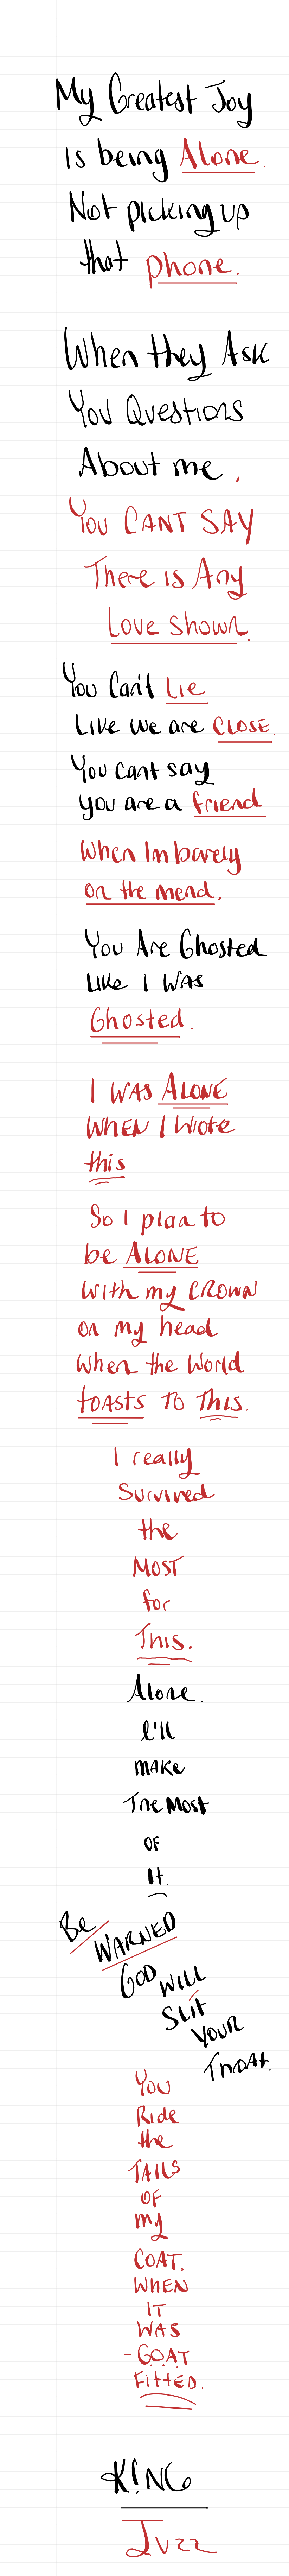 My Greatest Joy
is being Alone.
Not picking up
that phone.
When they Ask
You Questions
About me,
You CANT SAY
There is Any
Love shown.
You Can't Lie
Like we are CLOSE.
You cant say
you are a friend
When Im barely
on the mend.
You Are Ghosted
Like I WAS
Ghosted.
I WAS ALONE
WHEN I Wrote
this.
So I plan to
be ALONE
With my CROWN
on my head
When the World
tOASTS TO THIS.
I really
Survived
the
MOST
for
This.
Alone.
I'll
MAKE
The Most
OF
It.
Be WARNED
GOD WILL
Slit
YOUR
ThroAt.
You
Ride
the
TAILS
OF
my
COAT.
WHEN
IT
WAS
-G.O.A.T
Fitted.
K!NG